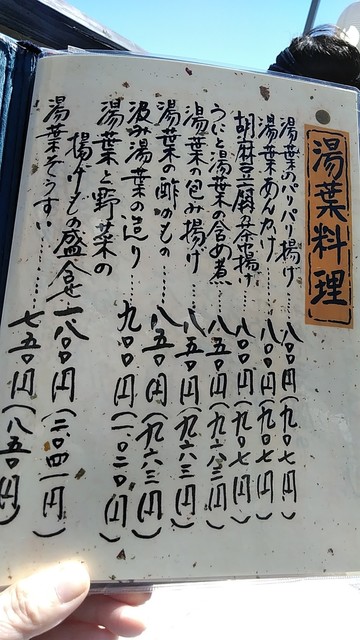 湯葉料理
湯葉のパリパリ揚げ……八〇〇円(九〇七円)
湯葉あんかけ……八〇〇円(九〇七円)
胡麻豆腐の茶巾揚げ…八〇〇円(九〇七円)
うにと湯葉の含め煮…八五〇円(九六三円)
湯葉の包み揚げ……八五〇円(九六三円)
湯葉の酢のもの……八五〇円(九六三円)
汲み湯葉の造り……九〇〇円(一〇二〇円)
湯葉と野菜の
揚げもの盛合せ 一八〇〇円(二〇四一円)
湯葉ぞうすい………七五〇円(八五〇円)